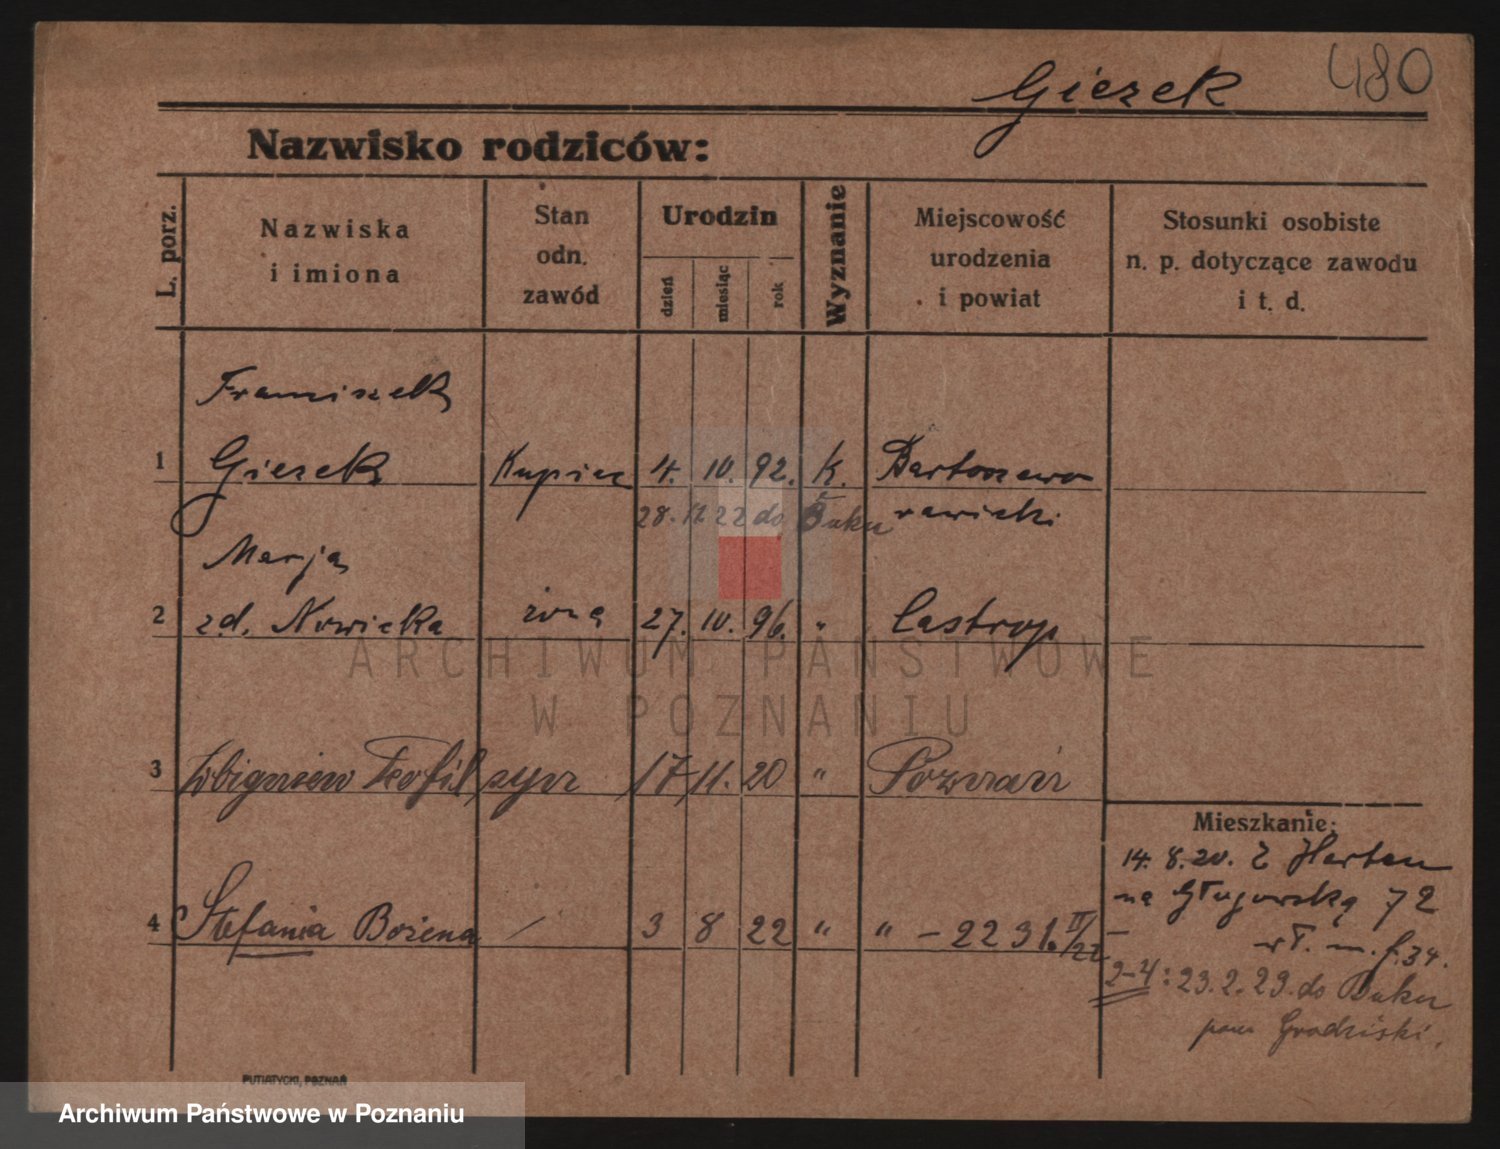 480
Gierek
Nazwisko rodziców:
L. porz.
Nazwiska
i imiona
Stan
odn.
zawód
Urodzin
dzień
miesiąc
rok
Wyznanie
Miejscowość
urodzenia
i powiat
Stosunki osobiste
n. p. dotyczące zawodu
i t. d.
Franciszek
1 Gierek Kupiec 4. 10. 92. k.
28. 12 22 do Buku
Marja
2 zd. Nowicka żona 27. 10. 96. " Castrop
3 Zbigniew Teofil syn 17 11. 20 " Poznań
4 Stefania Bożena / 3 8 22 " " - 22
Mieszkanie:
14. 8. 20. Z
na 72
2-4: 23. 2. 23. do Buku
pow Grodziski.
PUTIATYCKI, POZNAŃ
ARCHIWUM PAŃSTWOWE
W POZNANIU
Archiwum Państwowe w Poznaniu